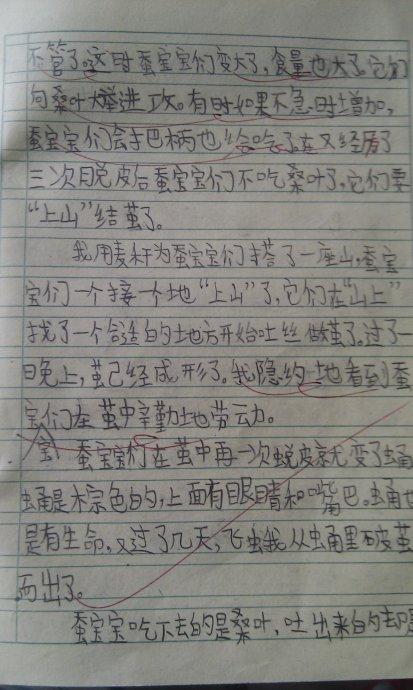 不管了。这时蚕宝宝们变大了,食量也大了。它们
向桑叶大举进攻。有时如果不急时增加,
蚕宝宝们会手巴柄也给吃了。在又经历了
三次脱皮后蚕宝宝们不吃桑叶了,它们要
“上山”结茧了。
我用麦杆为蚕宝宝们搭了一座山,蚕宝
宝们一个接一个地“上山”了,它们在“山上”
找了一个合适的地方开始吐丝做茧了。过了一
日晚上,茧已经成形了。我隐约地看到蚕
宝们在茧中辛勤地劳动。
蚕宝宝们在茧中再一次蜕皮就变了蛹
蛹是棕色的,上面有眼睛和嘴巴。蛹也
是有生命,又过了几天,飞虫我从蛹里破茧
而出了。
蚕宝宝吃下去的是桑叶,吐出来的却是